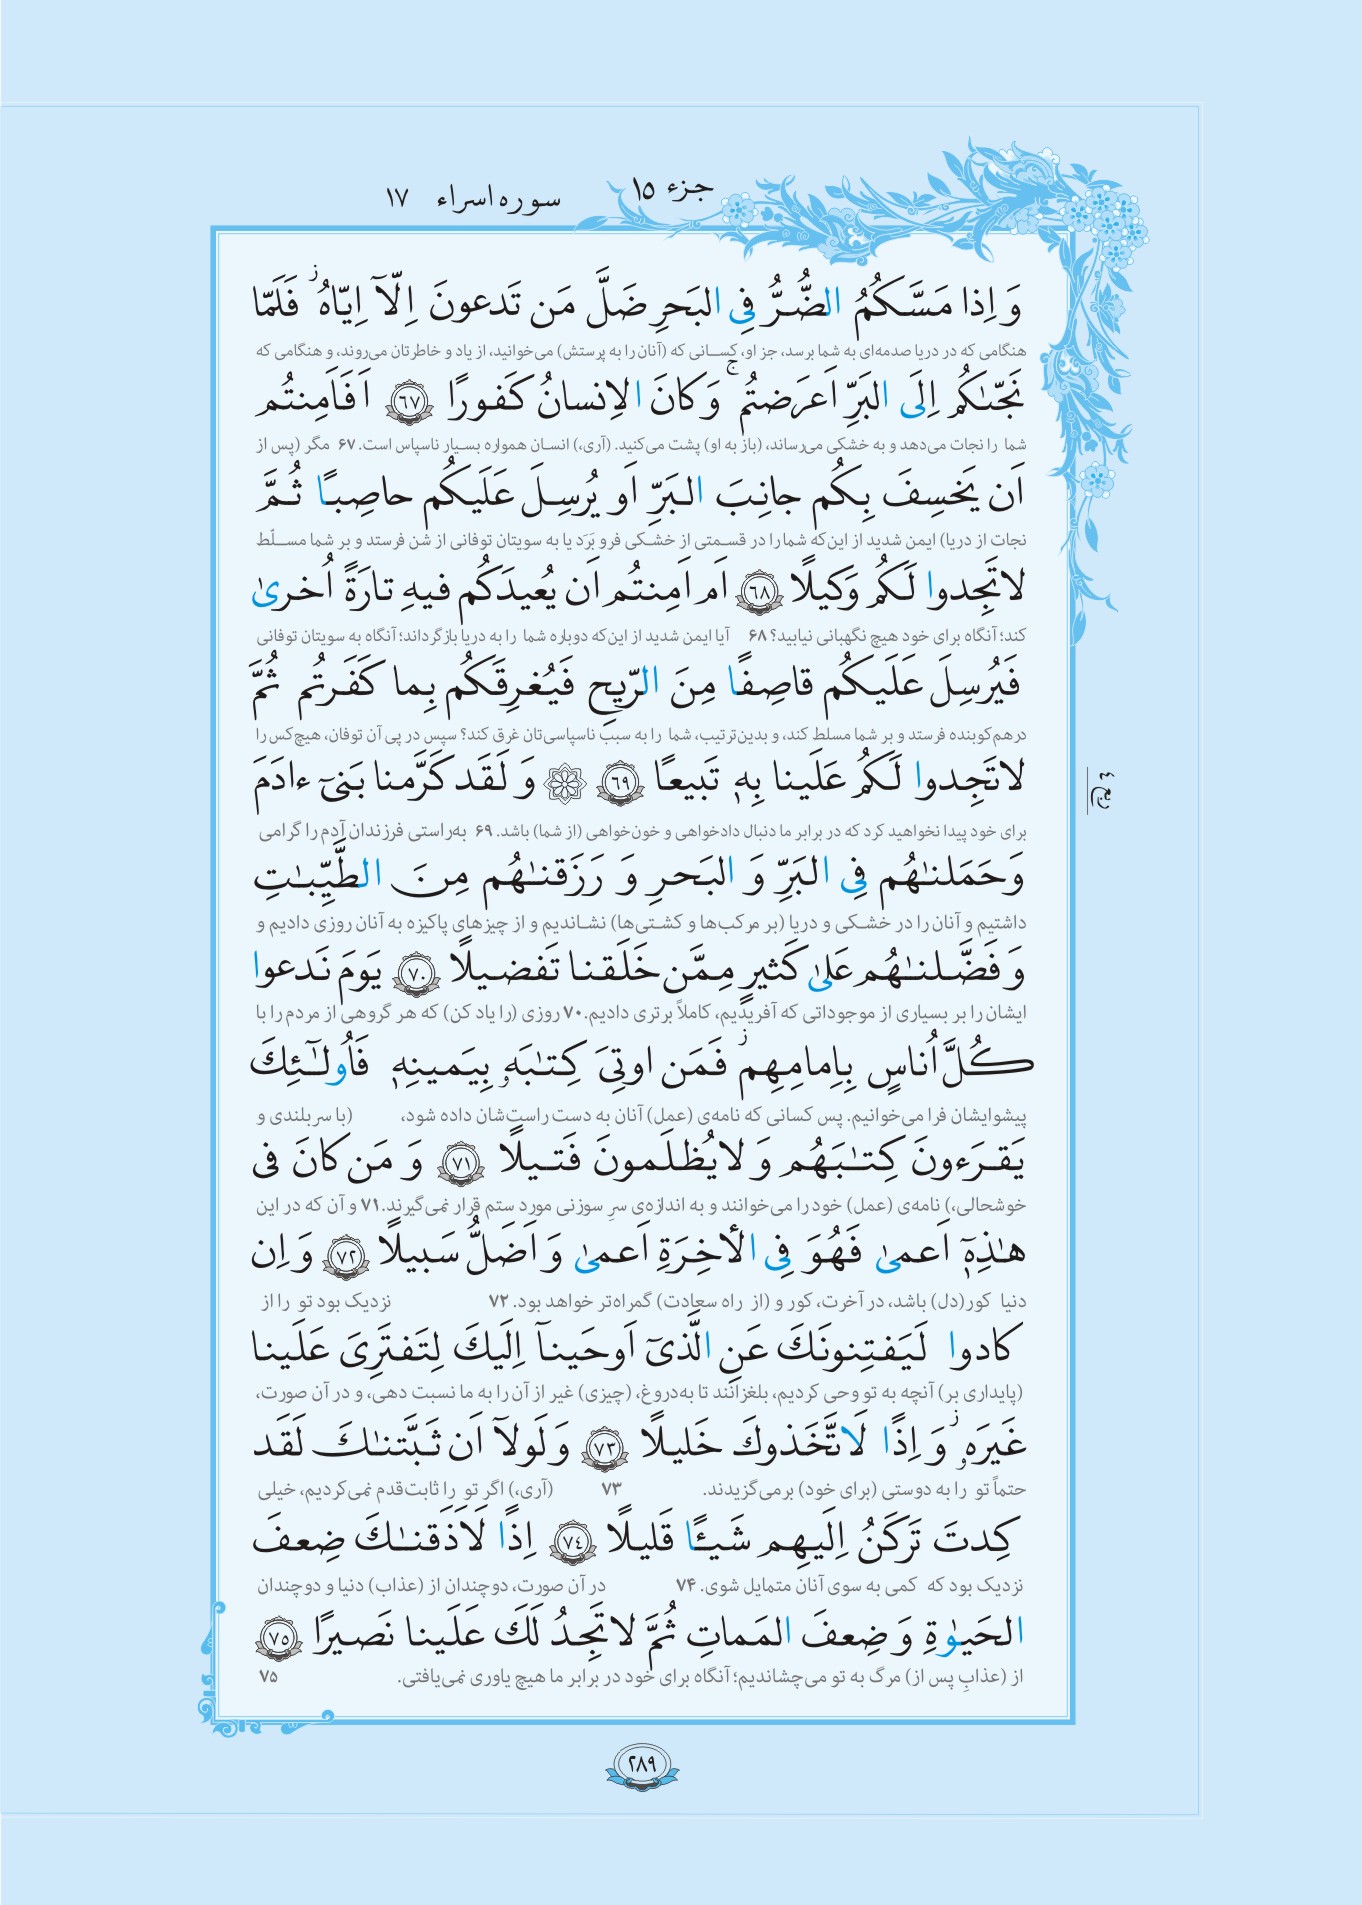 جزء ۱۵
سوره اسراء ۱۷
وَ اِذا مَسَّكُمُ الضُّرُّ فِی البَحرِ ضَلَّ مَن تَدعونَ اِلّآ اِیّاهُ ۖ فَلَمّا
هنگامی که در دریا صدمه‌ای به شما برسد، جز او، کسـانی که (آنان را به پرستش) می‌خوانید، از یاد و خاطرتان می‌روند، و هنگامی که
نَجّىٰكُم اِلَى البَرِّ اَعرَضتُم ۚ وَ كانَ الاِنسانُ كَفورًا ﴿٦٧﴾ اَفَاَمِنتُم
شما را نجات می‌دهد و به خشکی می‌رساند، (باز به او) پشت می‌کنید. (آری،) انسان همواره بسیار ناسپاس است. ۶۷ مگر (پس از
اَن یَخسِفَ بِكُم جانِبَ البَرِّ اَو یُرسِلَ عَلَیكُم حاصِبًا ثُمَّ
نجات از دریا) ایمن شدید از این‌که شما را در قسمتی از خشکی فرو بَرَد یا به سویتان توفانی از شن فرستد و بر شما مسلّط
لاتَجِدوا لَكُم وَكیلًا ﴿٦٨﴾ اَم اَمِنتُم اَن یُعیدَكُم فیهِ تارَةً اُخرىٰ
کند؛ آنگاه برای خود هیچ نگهبانی نیابید؟ ۶۸ آیا ایمن شدید از این‌که دوباره شما را به دریا بازگرداند؛ آنگاه به سویتان توفانی
فَیُرسِلَ عَلَیكُم قاصِفًا مِنَ الرّیحِ فَیُغرِقَكُم بِما كَفَرتُم ثُمَّ
درهم‌کوبنده فرستد و بر شما مسلط کند، و بدین‌ترتیب، شما را به سبب ناسپاسی‌تان غرق کند؟ سپس در پی آن توفان، هیچ‌کس را
لاتَجِدوا لَكُم عَلَینا بِهٖ تَبیعًا ﴿٦٩﴾ ۞ وَ لَقَد كَرَّمنا بَنیٓ ءادَمَ
ربع ٤
برای خود پیدا نخواهید کرد که در برابر ما دنبال دادخواهی و خون‌خواهی (از شما) باشد. ۶۹ به‌راستی فرزندان آدم را گرامی
وَ حَمَلنٰهُم فِی البَرِّ وَ البَحرِ وَ رَزَقنٰهُم مِنَ الطَّیِّبٰتِ
داشتیم و آنان را در خشکی و دریا (بر مرکب‌ها و کشتی‌ها) نشاندیم و از چیزهای پاکیزه به آنان روزی دادیم و
وَ فَضَّلنٰهُم عَلىٰ كَثیرٍ مِمَّن خَلَقنا تَفضیلًا ﴿٧٠﴾ یَومَ نَدعوا
ایشان را بر بسیاری از موجوداتی که آفریدیم، کاملاً برتری دادیم. ۷۰ روزی (را یاد کن) که هر گروهی از مردم را با
كُلَّ اُناسٍ بِاِمامِهِم ۖ فَمَن اوتِیَ كِتٰبَهٗ بِیَمینِهٖ فَاُولٰٓئِكَ
پیشوایشان فرا می‌خوانیم. پس کسانی که نامه‌ی (عمل) آنان به دست راستِ‌شان داده شود، (با سربلندی و
یَقرَءونَ كِتٰبَهُم وَ لایُظلَمونَ فَتیلًا ﴿٧١﴾ وَ مَن كانَ فی
خوشحالی،) نامه‌ی (عمل) خود را می‌خوانند و به اندازه‌ی سرِ سوزنی مورد ستم قرار نمی‌گیرند. ۷۱ و آن که در این
هٰذِهٖٓ اَعمىٰ فَهُوَ فِی الأخِرَةِ اَعمىٰ وَ اَضَلُّ سَبیلًا ﴿٧٢﴾ وَ اِن
دنیا کور(دل) باشد، در آخرت، کور و (از راه سعادت) گمراه‌تر خواهد بود. ۷۲ نزدیک بود تو را از
كادوا لَیَفتِنونَكَ عَنِ الَّذیٓ اَوحَینآ اِلَیكَ لِتَفتَرِیَ عَلَینا
(پایداری بر) آنچه به تو وحی کردیم، بلغزانند تا به‌دروغ، (چیزی) غیر از آن را به ما نسبت دهی، و در آن صورت،
غَیرَهٗ ۖ وَ اِذًا لَاتَّخَذوكَ خَلیلًا ﴿٧٣﴾ وَ لَولآ اَن ثَبَّتنٰكَ لَقَد
حتماً تو را به دوستی (برای خود) برمی‌گزیدند. ۷۳ (آری،) اگر تو را ثابت‌قدم نمی‌کردیم، خیلی
كِدتَ تَركَنُ اِلَیهِم شَیـًٔا قَلیلًا ﴿٧٤﴾ اِذًا لَاَذَقنٰكَ ضِعفَ
نزدیک بود که کمی به سوی آنان متمایل شوی. ۷۴ در آن صورت، دوچندان از (عذاب) دنیا و دوچندان
الحَیوٰةِ وَ ضِعفَ المَماتِ ثُمَّ لاتَجِدُ لَكَ عَلَینا نَصیرًا ﴿٧٥﴾
از (عذابِ پس از) مرگ به تو می‌چشاندیم؛ آنگاه برای خود در برابر ما هیچ یاوری نمی‌یافتی. ۷۵
۲۸۹